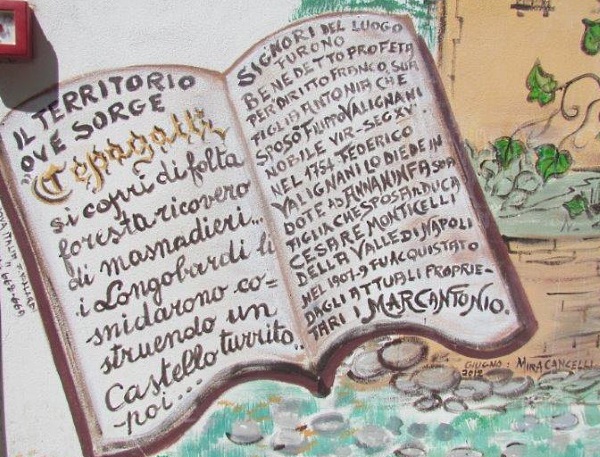 IL TERRITORIO
OVE SORGE
Cepagatti
si coprì di folta
foresta ricovero
di masnadieri...
i Longobardi li
snidarono co=
struendo un
Castello turrito..
poi...
SIGNORI DEL LUOGO
FURONO
BENEDETTO PROFETA
PER DIRITTO FRANCO, SUA
FIGLIA ANTONIA CHE
SPOSÒ FILIPPO VALIGNANI
NOBILE VIR-SEC XV.
NEL 1754. FEDERICO
VALIGNANI LO DIEDE IN
DOTE AD ANNA NINFA SUA
FIGLIA CHE SPOSA IL DUCA
CESARE MONTICELLI
DELLA VALLE DI NAPOLI
NEL 1907-9 FU ACQUISTATO
DAGLI ATTUALI PROPRIE-
TARI I MARCANTONIO.
GIUGNO: MIRA CANCELLI
2012